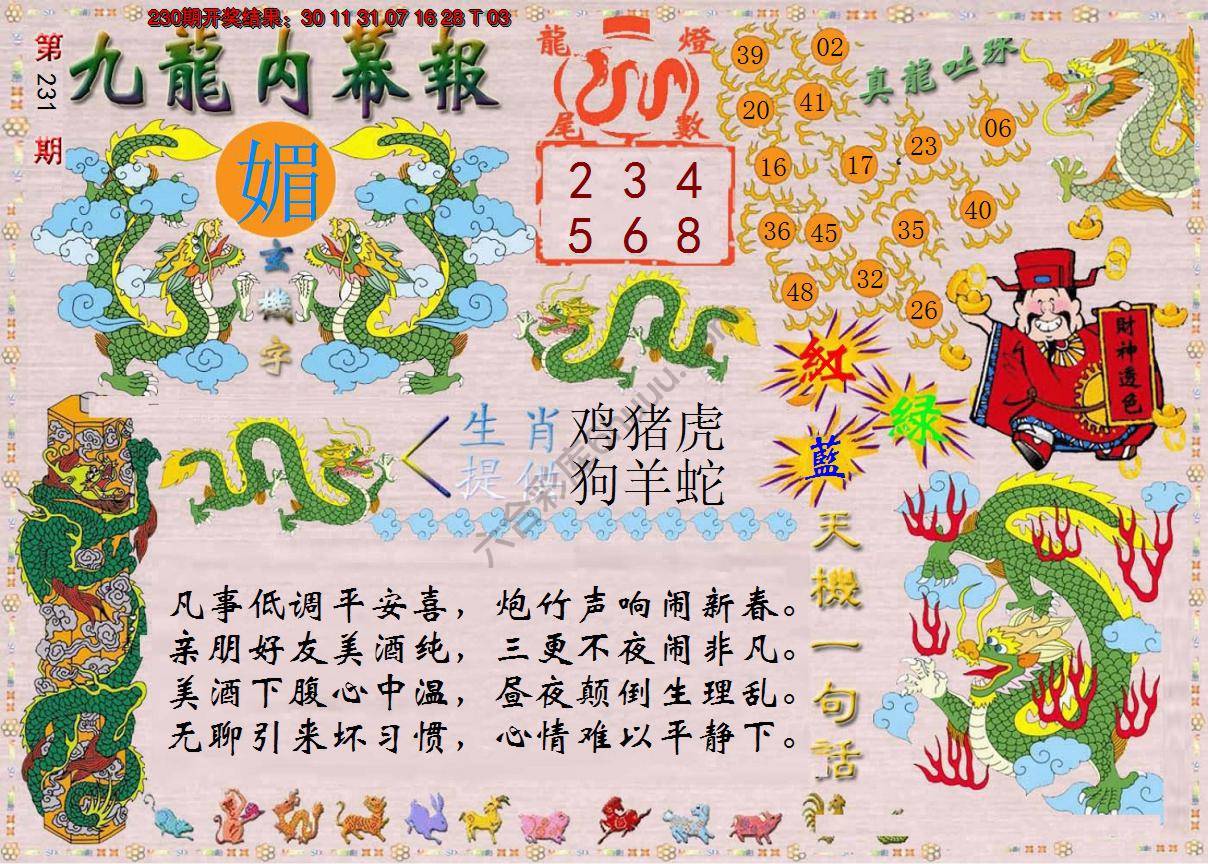 230期开奖结果：30 11 31 07 16 28 T 03
第231期
九龍内幕報
媚
玄機字
龍燈
尾數
2 3 4
5 6 8
真龍吐珠
39 02
20 41
16 17 23 06
36 45 35 40
48 32 26
財神透色
紅
綠
藍
生肖 鸡猪虎
提供 狗羊蛇
天機一句話
凡事低调平安喜，炮竹声响闹新春。
亲朋好友美酒纯，三更不夜闹非凡。
美酒下腹心中温，昼夜颠倒生理乱。
无聊引来坏习惯，心情难以平静下。